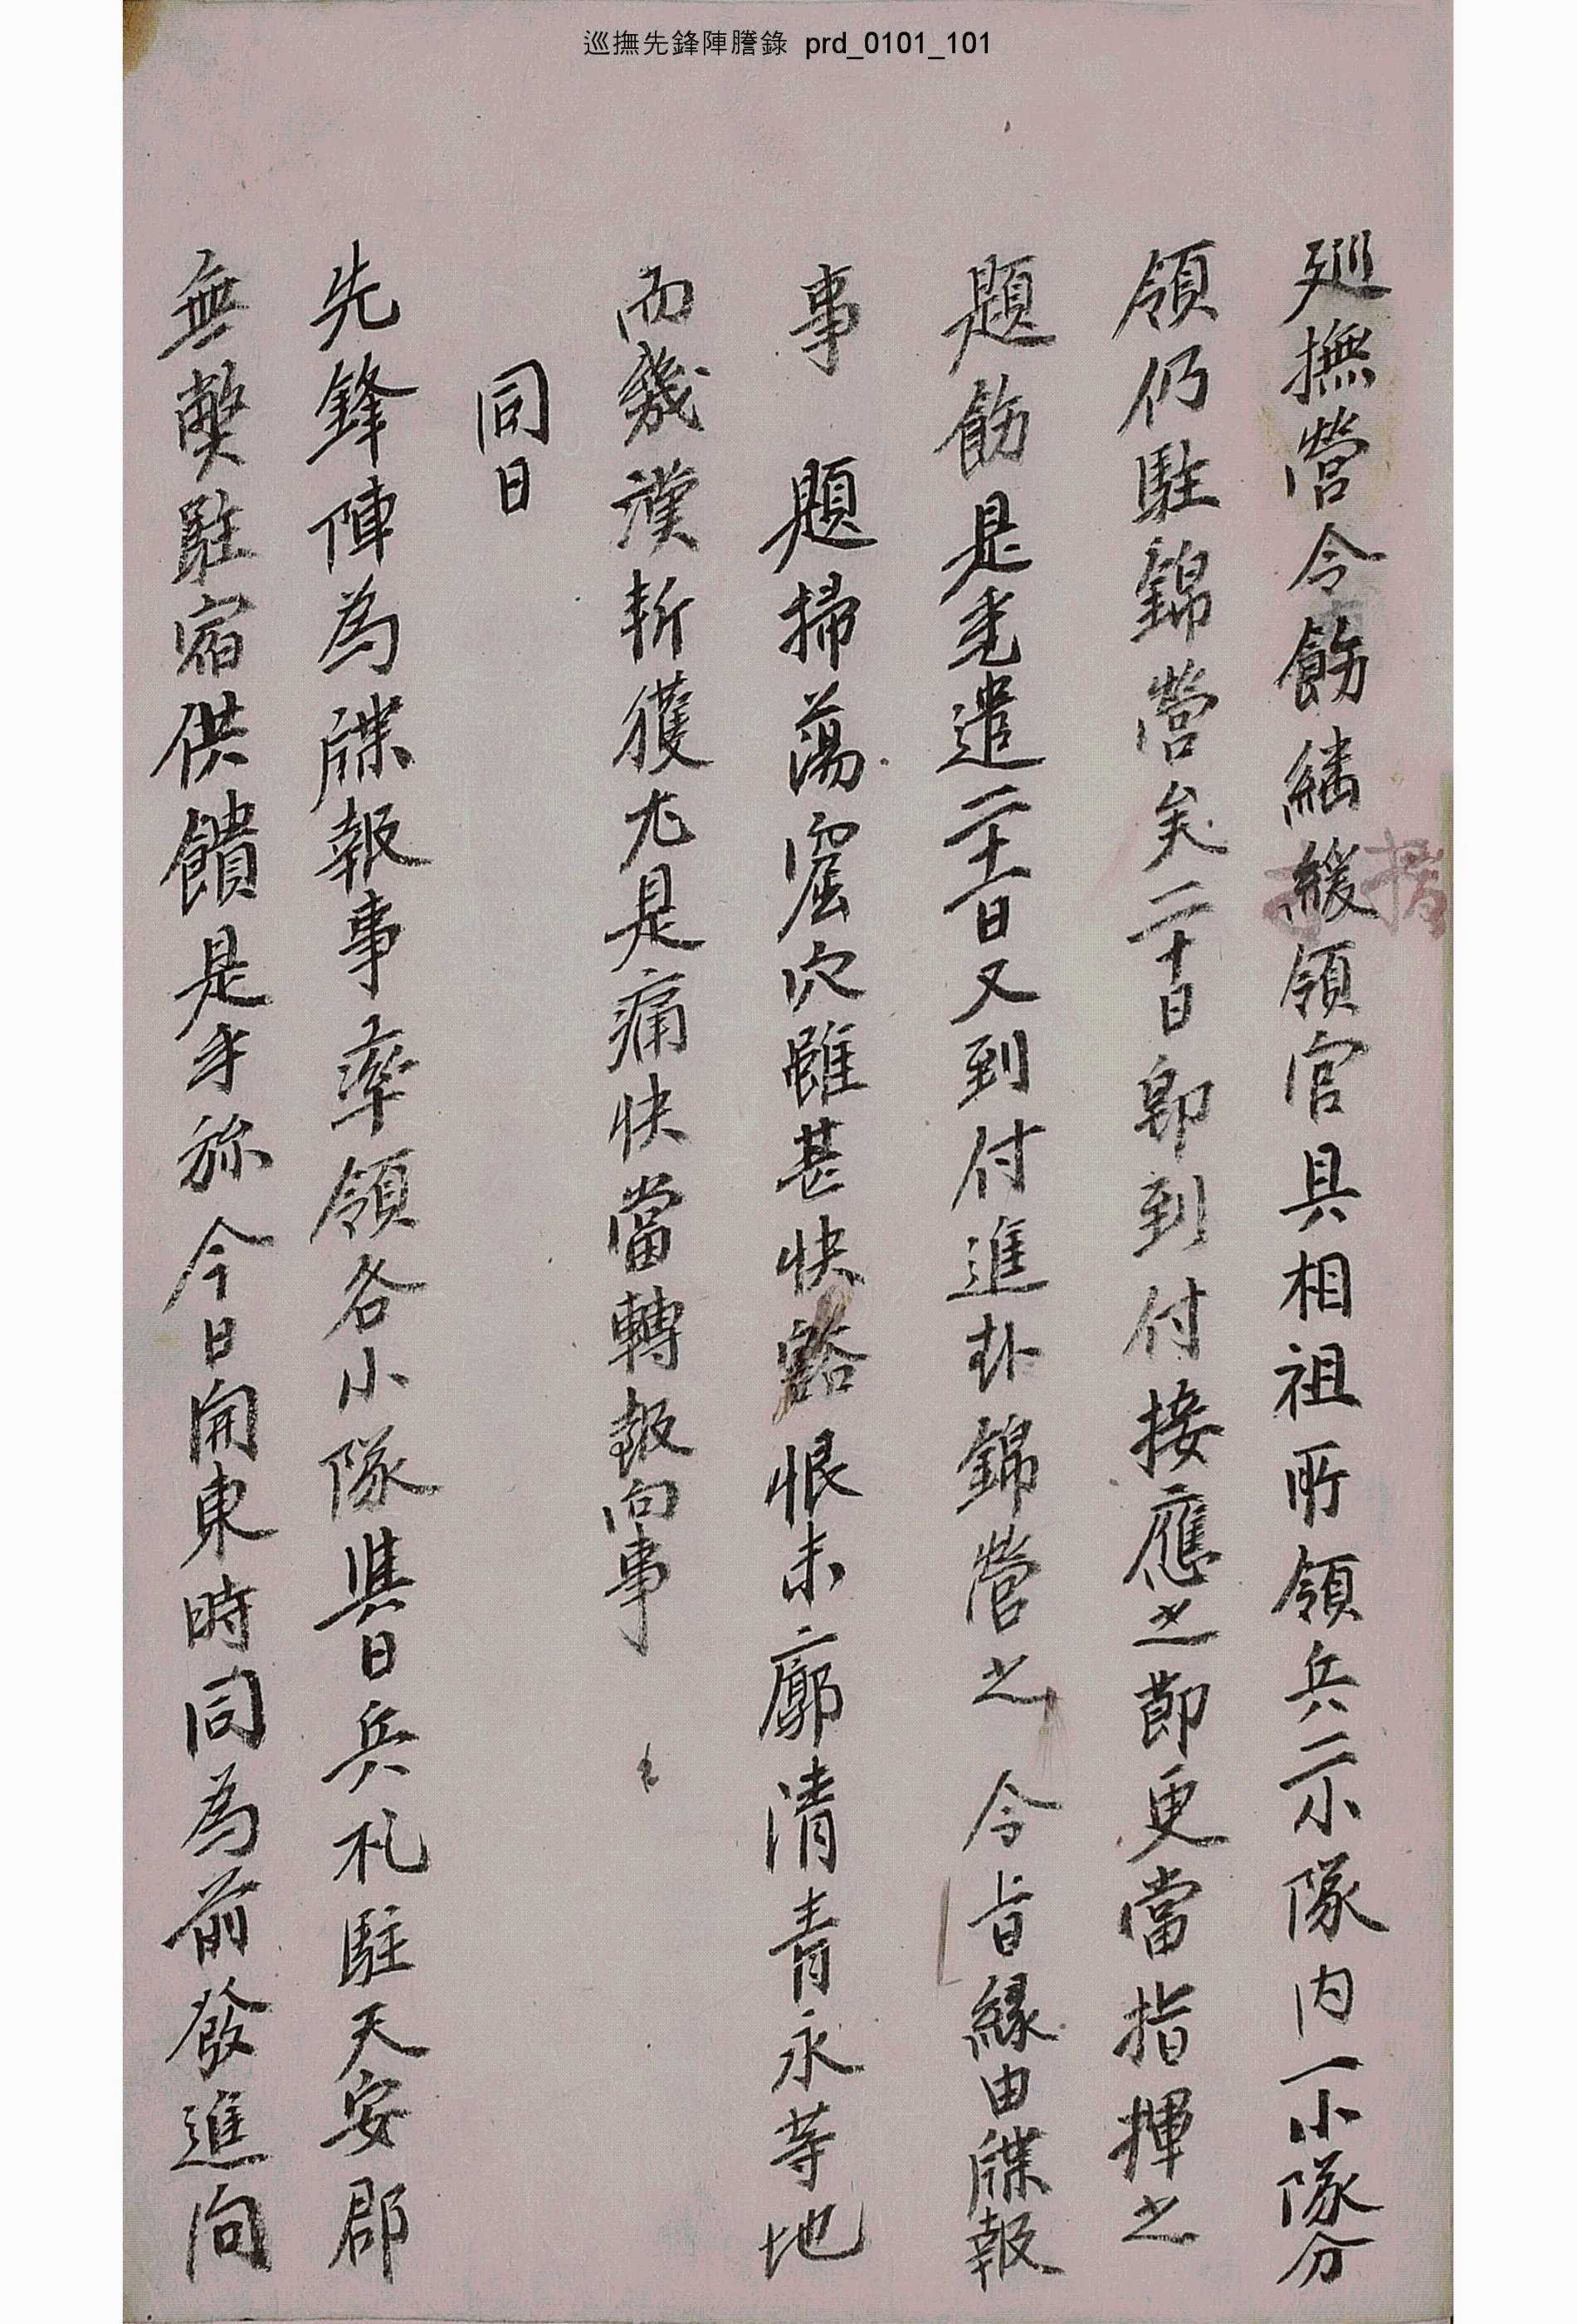 巡撫先鋒陣謄錄 prd_0101_101
廵撫營令飭繙緩領官具相祖所領兵二小隊內一小隊分
領仍駐錦營矣二十日卽到付接應之節更當指揮之
題飭是 遣二十一日又到付進 錦營之 令旨緣由牒報
事 題掃蕩窟穴雖甚快豁恨未廓淸靑永等地
而幾 斬獲尤是痛快當轉報向事
同日
先鋒陣爲牒報事率領各小隊與日兵札駐天安郡
無弊駐宿供饋是乎旀今日開東時同爲前發進向